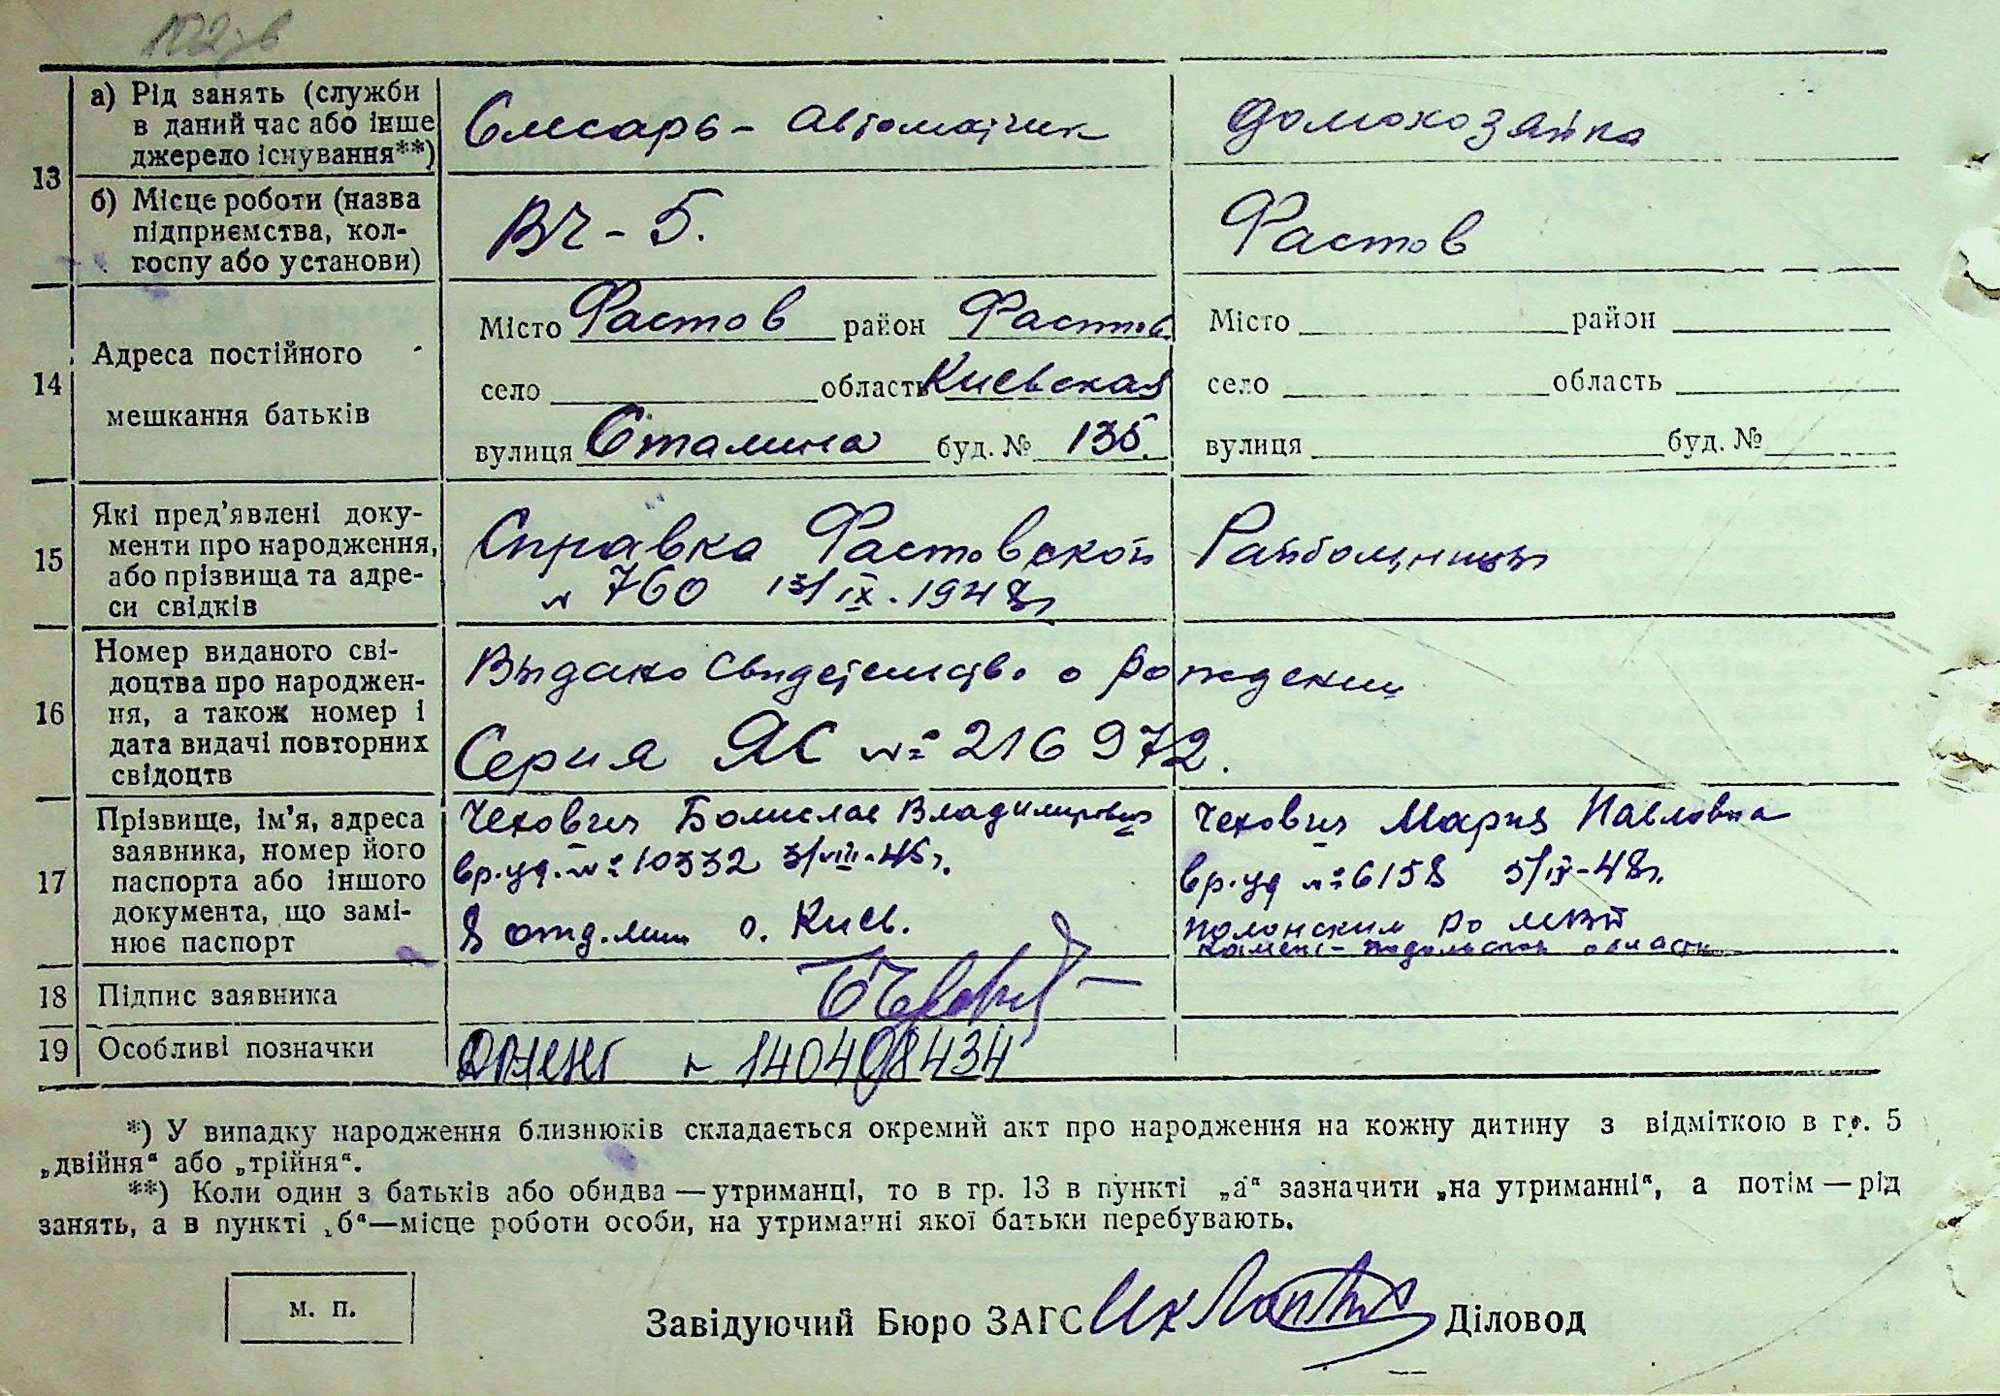 13 а) Рід занять (служби
в даний час або інше
джерело існування**)
Слесарь - автоматчик
домохозяйка
б) Місце роботи (назва
підприємства, кол-
госпу або установи)
ВЧ - 5.
Фастов
14 Адреса постійного
мешкання батьків
Місто Фастов район Фастов
село область Киевская
вулиця Сталина буд. № 135.
Місто район
село область
вулиця буд. №
15 Які пред’явлені доку-
менти про народження,
або прізвища та адре-
си свідків
Справка Фастовской Райбольницы
№ 760 13/IX. 1948г
16 Номер виданого сві-
доцтва про народжен-
ня, а також номер і
дата видачі повторних
свідоцтв
Выдано свидетельство о рождении
Серия ЯС № 216972.
17 Прізвище, ім’я, адреса
заявника, номер його
паспорта або іншого
документа, що замі-
нює паспорт
Чехович Болислав Владимирович
вр.уд. № 10332 3/VIII-45г.
8 отд.мил г. Киев.
Чехович Мария Павловна
вр.уд № 6158 5/IX-48г.
Полонским Ро МВД
Камене-Подольской области
18 Підпис заявника
19 Особливі позначки
№ 140498434
*) У випадку народження близнюків складається окремий акт про народження на кожну дитину з відміткою в гр. 5
„двійня“ або „трійня“.
**) Коли один з батьків або обидва — утриманці, то в гр. 13 в пункті „а“ зазначити „на утриманні“, а потім — рід
занять, а в пункті „б“—місце роботи особи, на утриманні якої батьки перебувають.
м. п.
Завідуючий Бюро ЗАГС Діловод